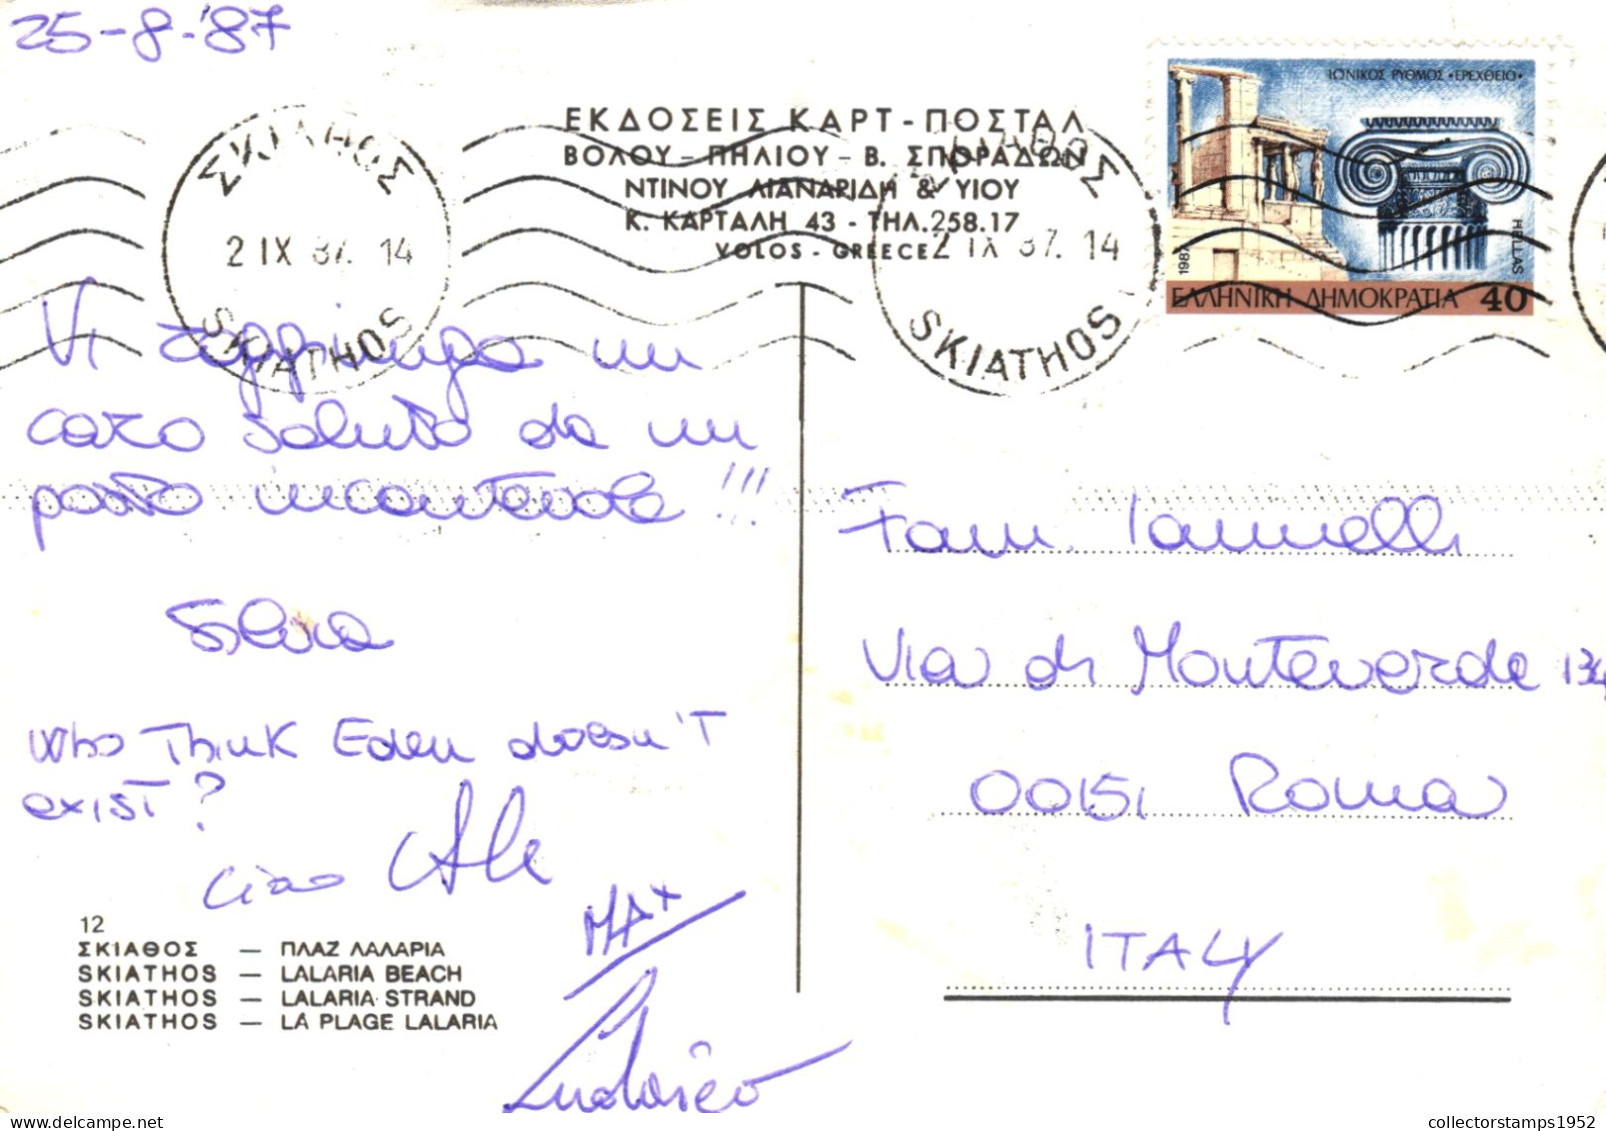 25-8-'87
ΕΚΔΟΣΕΙΣ ΚΑΡΤ-ΠΟΣΤΑΛ
ΒΟΛΟΥ-ΠΗΛΙΟΥ-Β. ΣΠΟΡΑΔΩΝ
ΝΤΙΝΟΥ ΛΙΑΝΑΡΙΔΗ & ΥΙΟΥ
Κ. ΚΑΡΤΑΛΗ 43 - ΤΗΛ.258.17
VOLOS - GREECE
ΙΩΝΙΚΟΣ ΡΥΘΜΟΣ «ΕΡΕΧΘΕΙΟ»
1987
HELLAS
ΕΛΛΗΝΙΚΗ ΔΗΜΟΚΡΑΤΙΑ 40
ΣΚΙΑΘΟΣ
2 IX 87. 14
SKIATHOS
ΣΚΙΑΘΟΣ
2 IX 87. 14
SKIATHOS
Vi raggiunga un
caro saluto da un
posto incantevole !!!
Silvia
Who Think Eden doesn't
exist?
Ciao Ale
MAX
Ludovico
Fam. Iannelli
Via di Monteverde
00151 Roma
ITALY
12
ΣΚΙΑΘΟΣ — ΠΛΑΖ ΛΑΛΑΡΙΑ
SKIATHOS — LALARIA BEACH
SKIATHOS — LALARIA STRAND
SKIATHOS — LA PLAGE LALARIA
collectorstamps1952